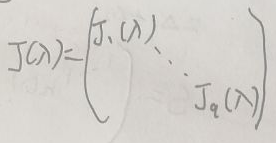 J(λ)=(J₁(λ) ⋱ J_q(λ))